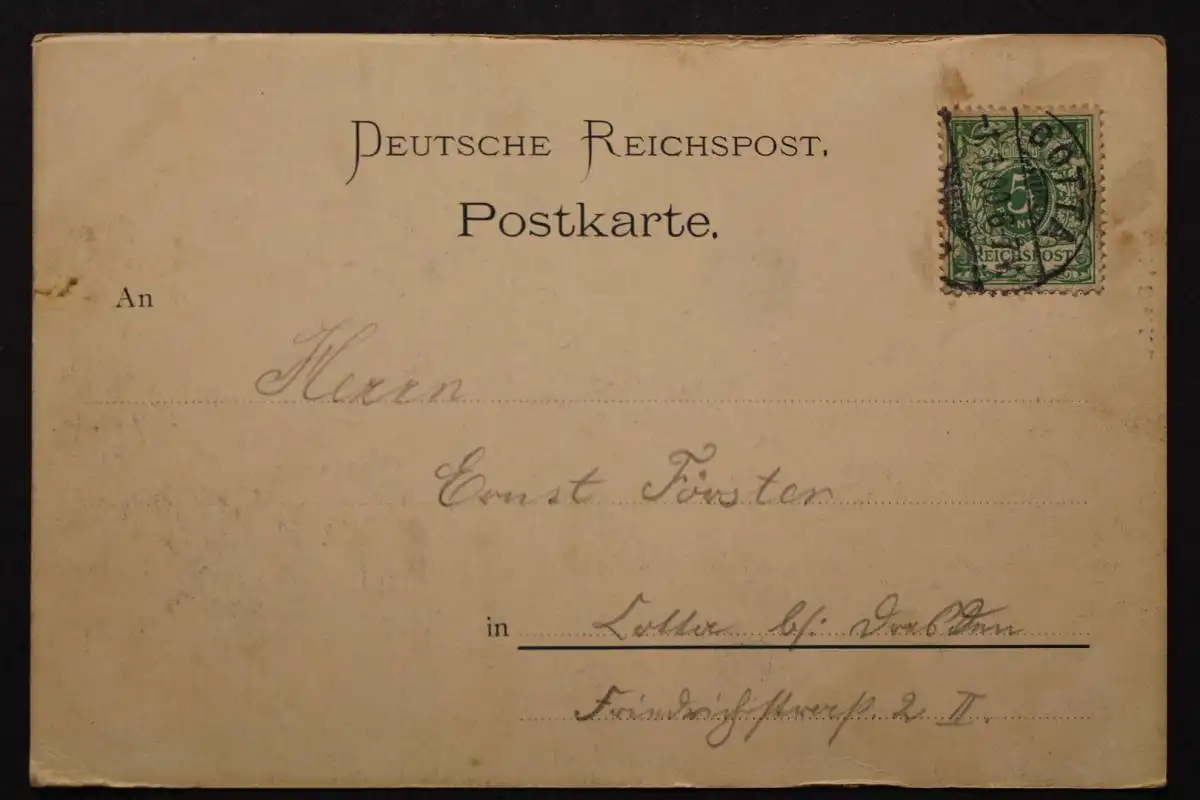 DEUTSCHE REICHSPOST.
Postkarte.
COTTA
5
REICHSPOST
An
Herrn
Ernst Förster
in Cotta b/: Dresden
Friedrichstraß. 2 II.